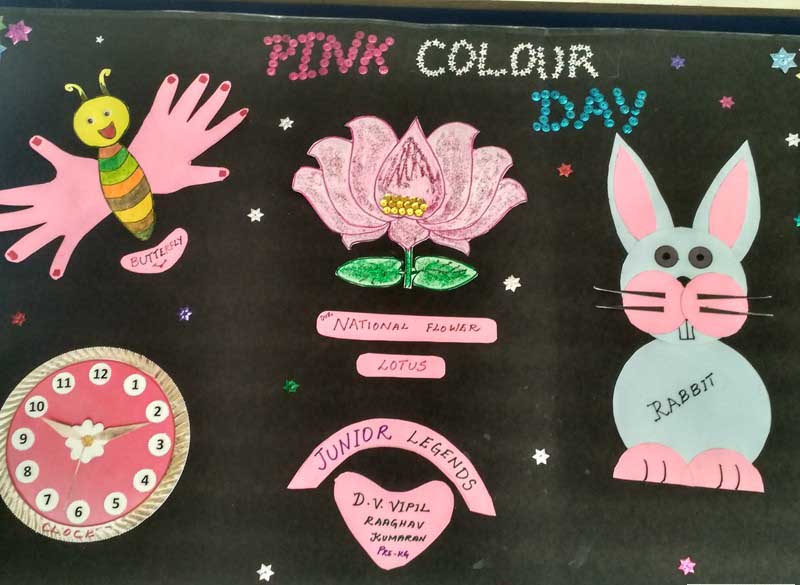 PINK COLOUR
DAY
BUTTERFLY
OUR NATIONAL FLOWER
LOTUS
RABBIT
12
1
2
3
4
5
6
7
8
9
10
11
CLOCK
JUNIOR LEGENDS
D.V. VIPIL
RAAGHAV
KUMARAN
PRE-KG